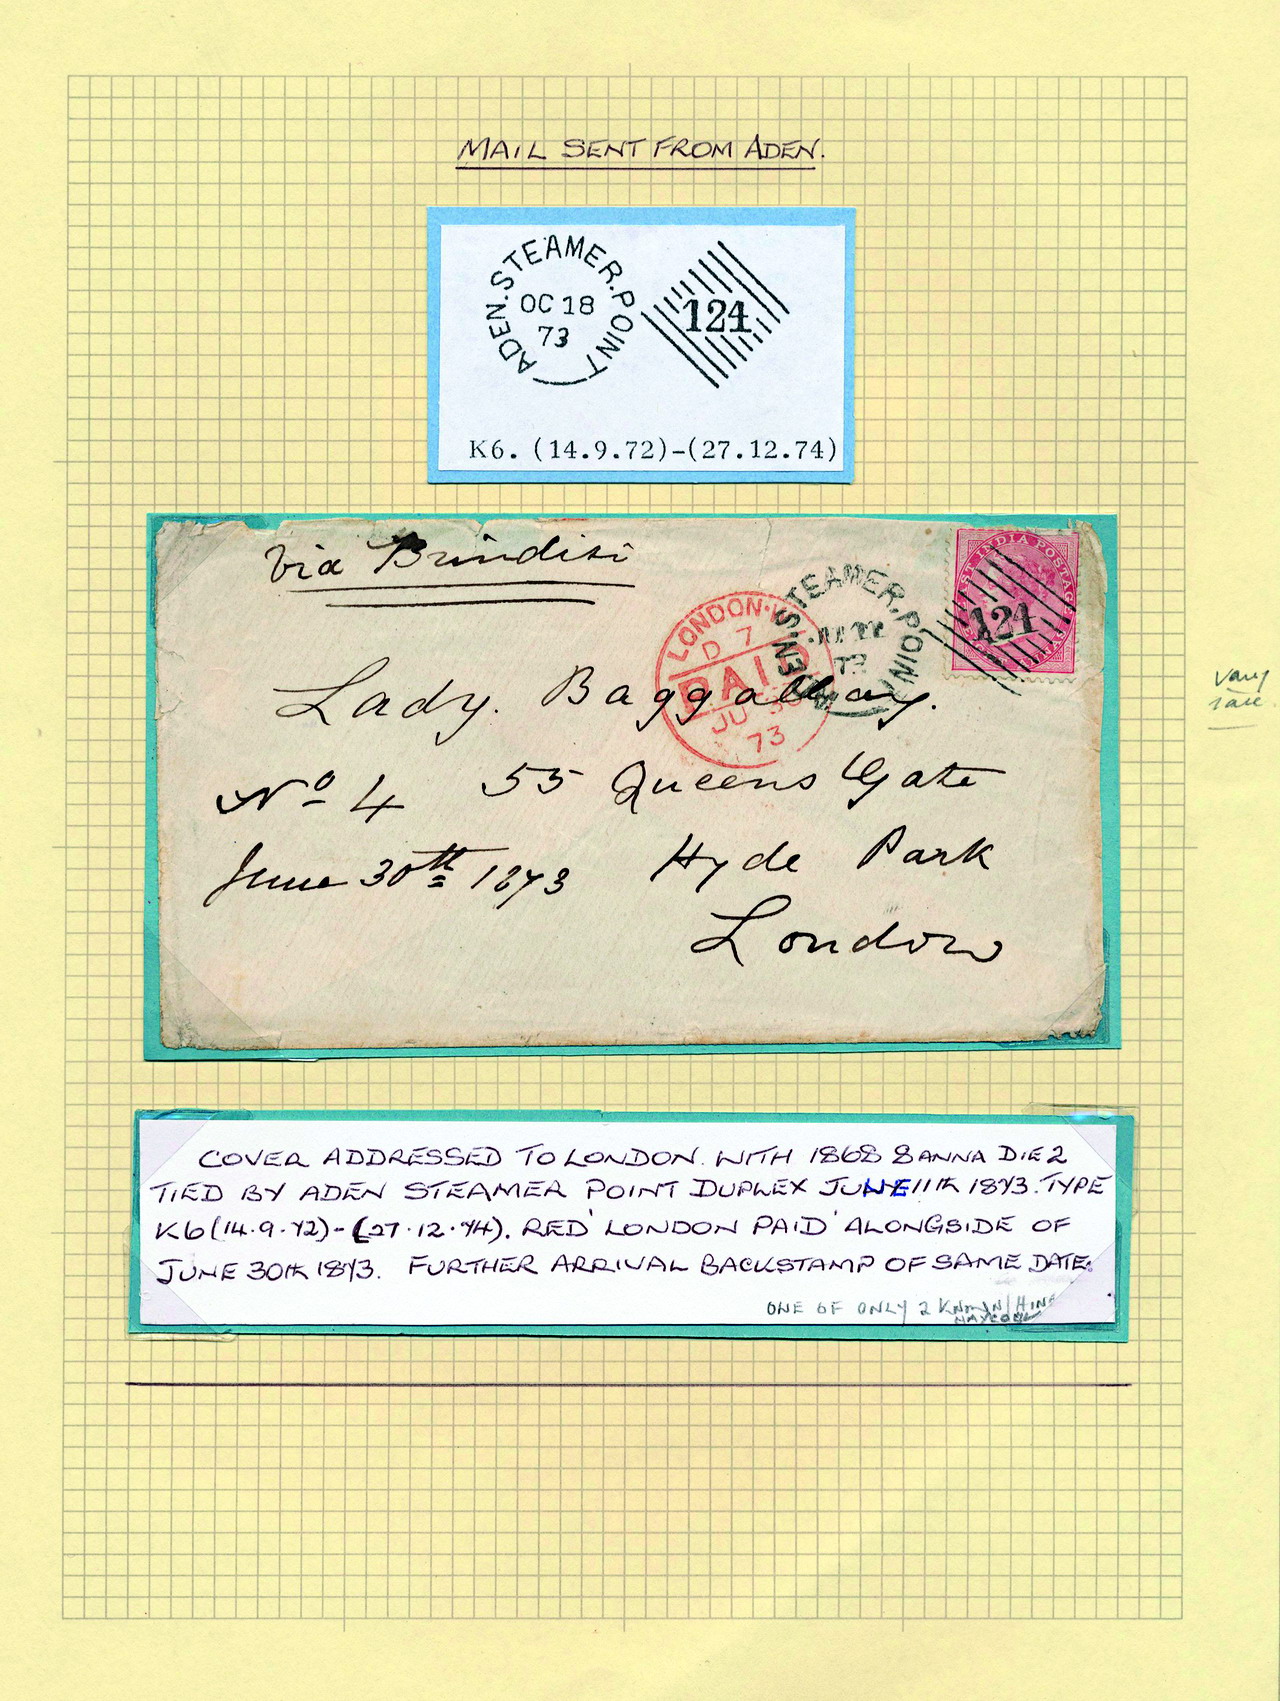 MAIL SENT FROM ADEN.
ADEN.STEAMER.POINT
OC 18
73
124
K6. (14.9.72)-(27.12.74)
Via Brindisi
EAST INDIA POSTAGE
124
ADEN.STEAMER.POINT
73
LONDON.W
D 7
PAID
JU 30
73
Lady. Baggallay.
No 4 55 Queens Gate
June 30th 1873 Hyde Park
London
very
rare
COVER ADDRESSED TO LONDON. WITH 1868 8 ANNA DIE 2
TIED BY ADEN STEAMER POINT DUPLEX JUNE 11th 1873. TYPE
K6 (14.9.72)-(27.12.74). RED 'LONDON PAID' ALONGSIDE OF
JUNE 30th 1873. FURTHER ARRIVAL BACKSTAMP OF SAME DATE.
ONE OF ONLY 2 KNOWN